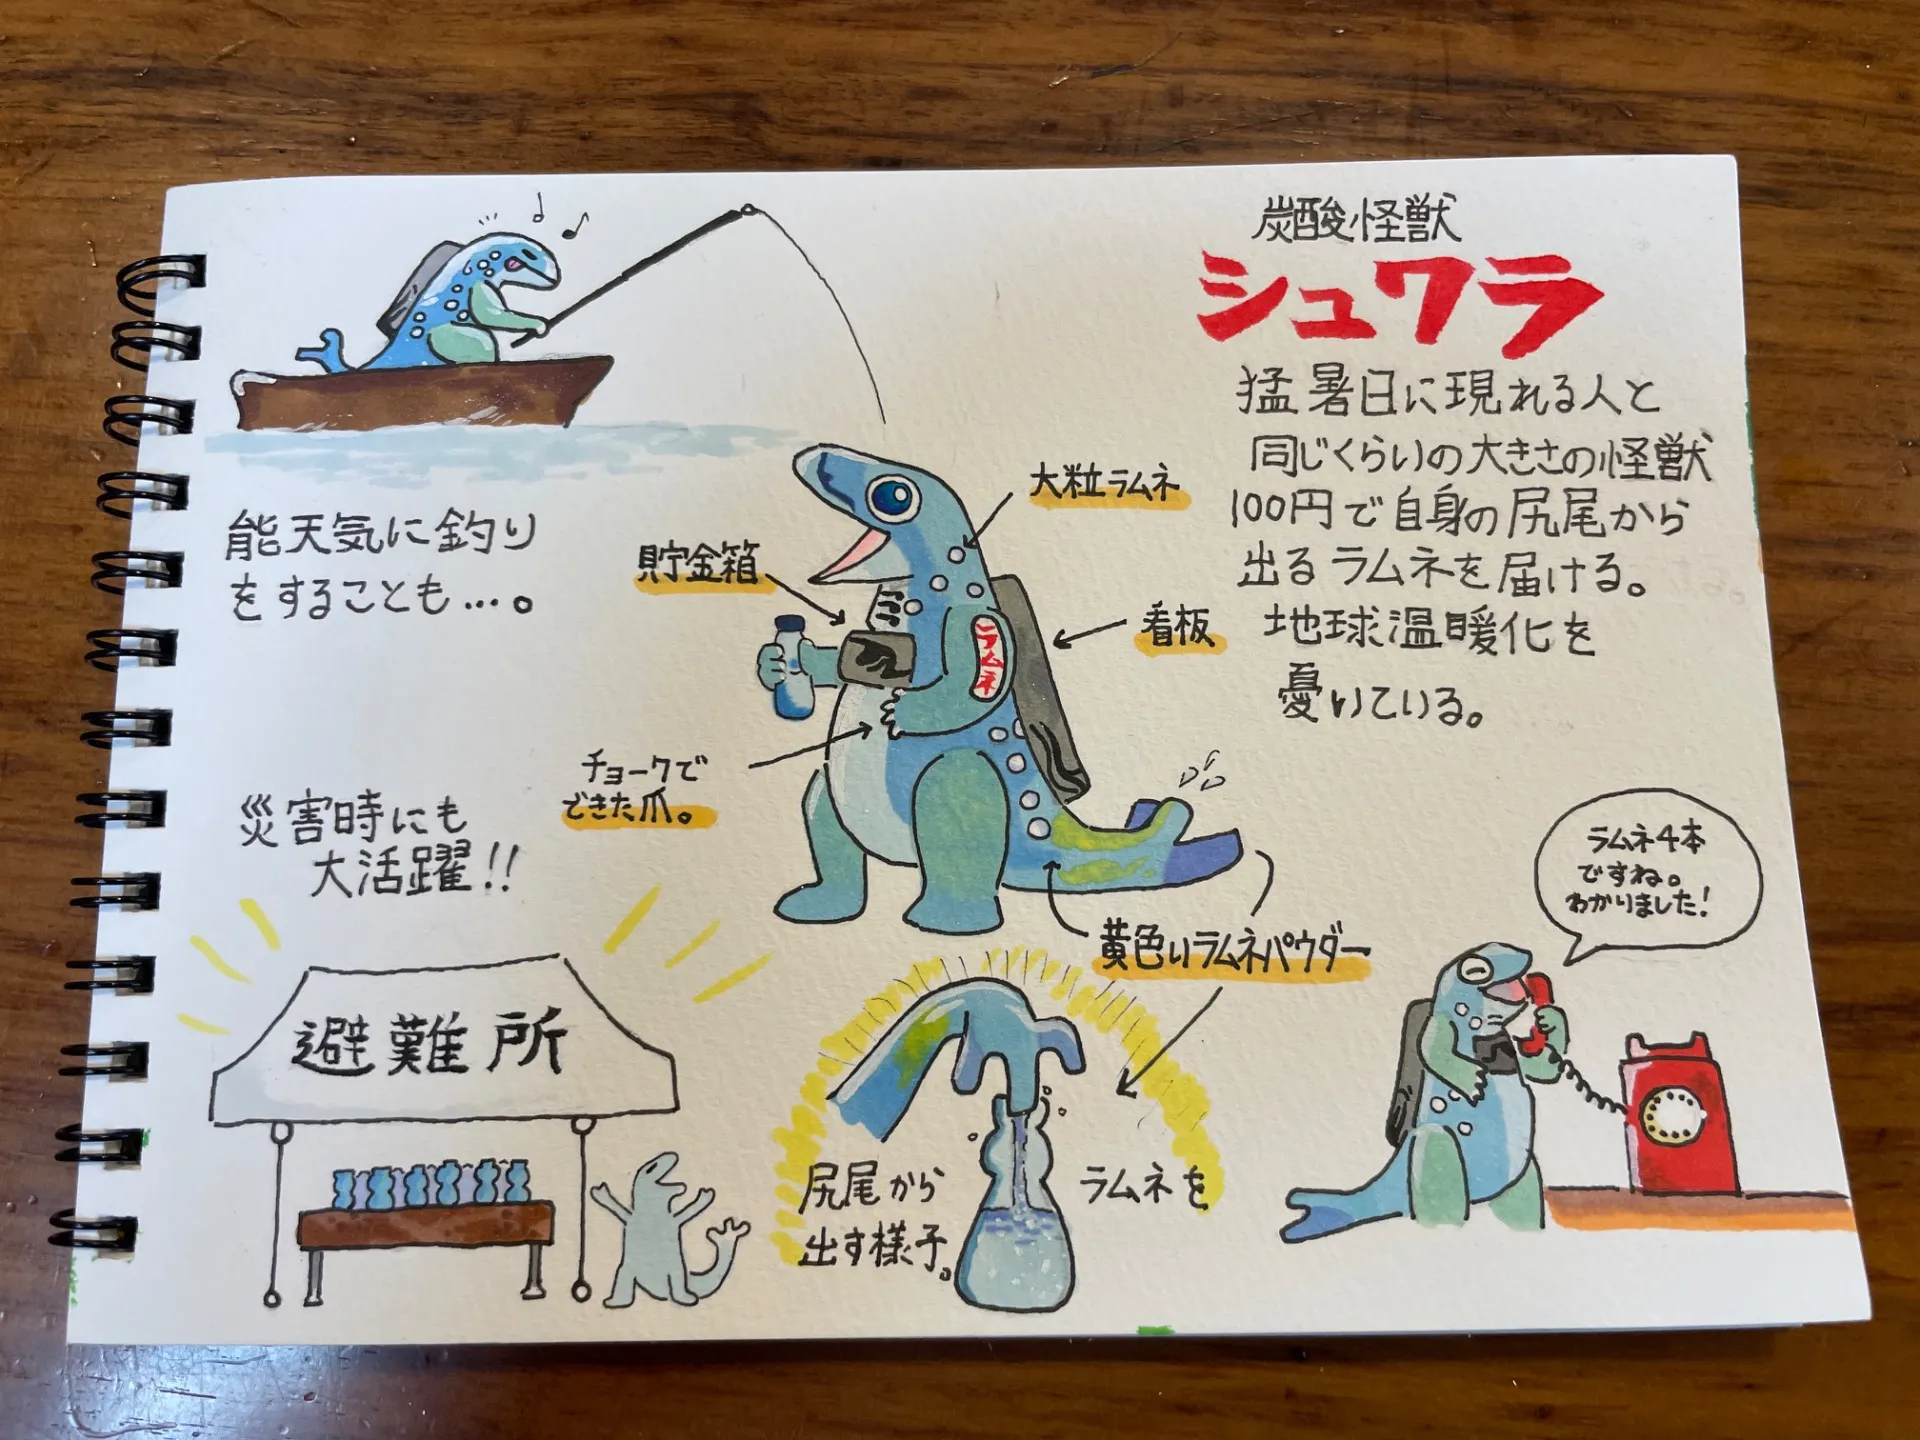 炭酸怪獣
シュワラ
猛暑日に現れる人と
同じくらいの大きさの怪獣
100円で自身の尻尾から
出るラムネを届ける。
地球温暖化を
憂いている。
能天気に釣り
をすることも…。
大粒ラムネ
貯金箱
看板
ラムネ
チョークで
できた爪。
黄色いラムネパウダー
災害時にも
大活躍!!
避難所
ラムネを
尻尾から
出す様子。
ラムネ4本
ですね。
わかりました!